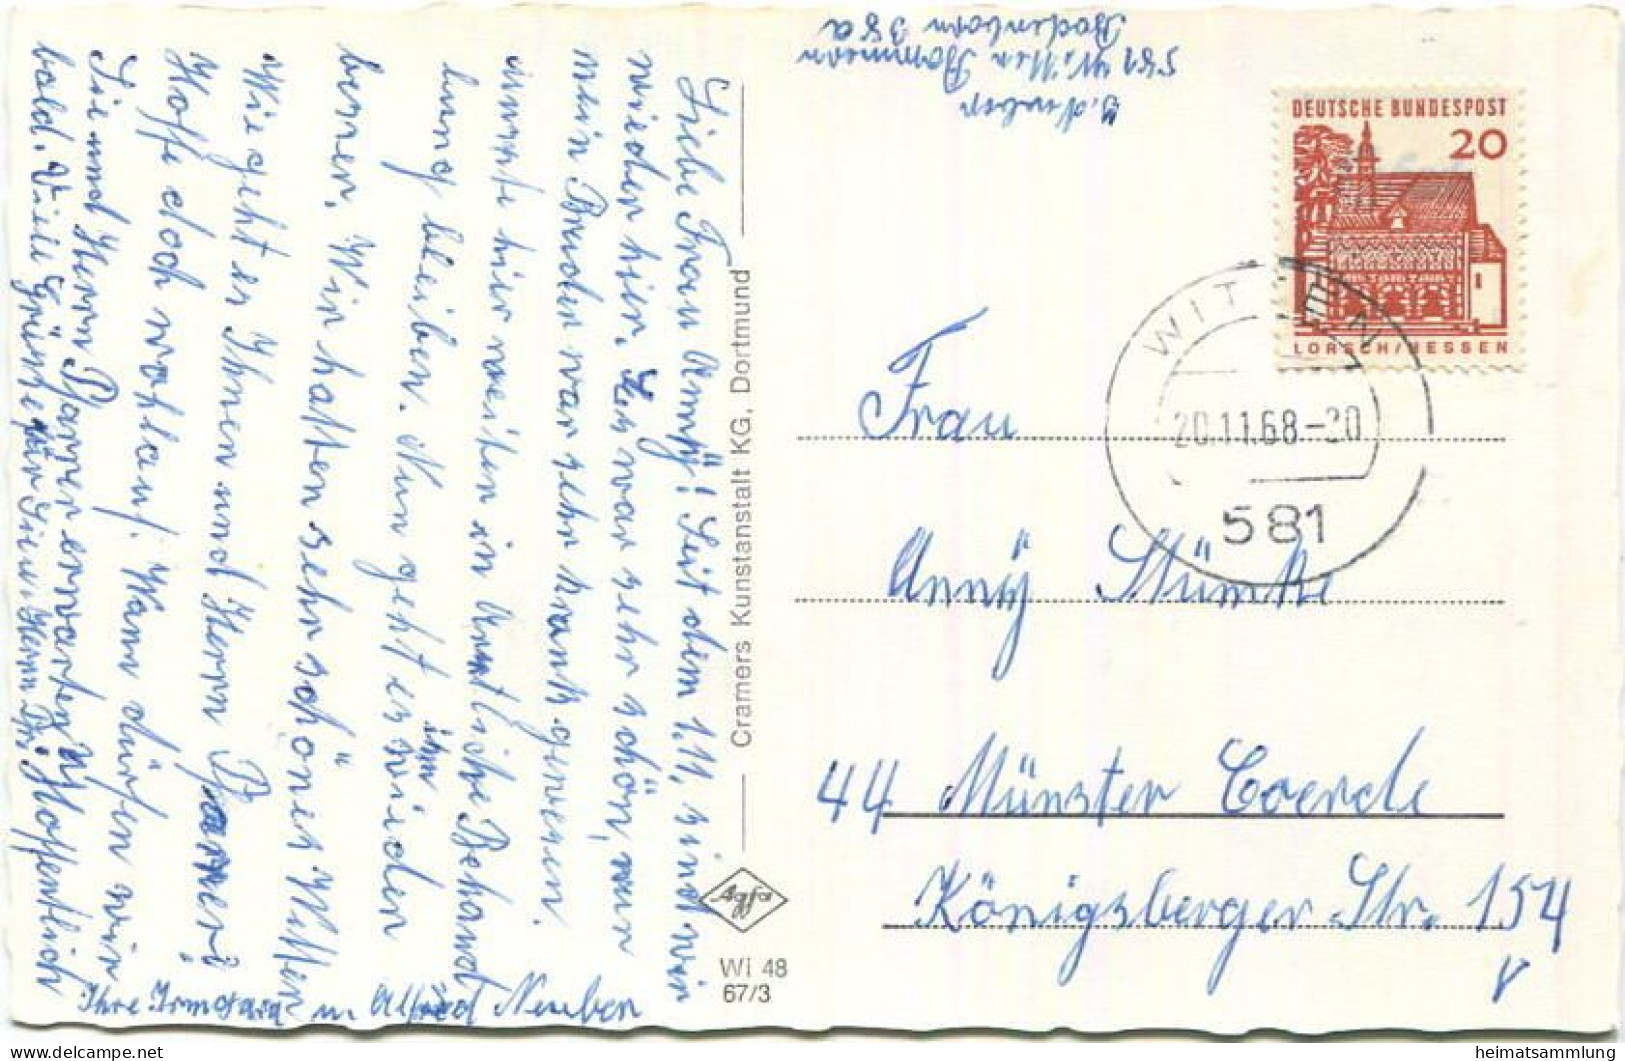 Liebe Frau Annÿ! Seit dem 1.11. sind wir
wieder hier. Es war sehr schön, nur
mein Bruder war sehr krank gewesen,
mußte hier weiter in Ärztliche Behand
lung bleiben. Nun geht es ihm wieder
besser. Wir hatten sehr schönes Wetter
Wie geht es Ihnen und Herrn Pfarrer?
Hoffe doch wohlauf. Wann dürfen wir
Sie und Herrn Pfarrer erwarten? Hoffentlich
bald. Viele Grüße für Sie u. Herrn Pfr.
Ihre Irmgard u. Alfred Neuber
Cramers Kunstanstalt KG, Dortmund
Agfa
Wi 48
67/3
Neuber
581 Witten Bommern
Bodenborn 38a
DEUTSCHE BUNDESPOST
20
LORSCH/HESSEN
WITTEN
20.11.68-20
581
Frau
Annÿ Stümke
44 Münster Coerde
Königsberger-Str. 154
heimatsammlung